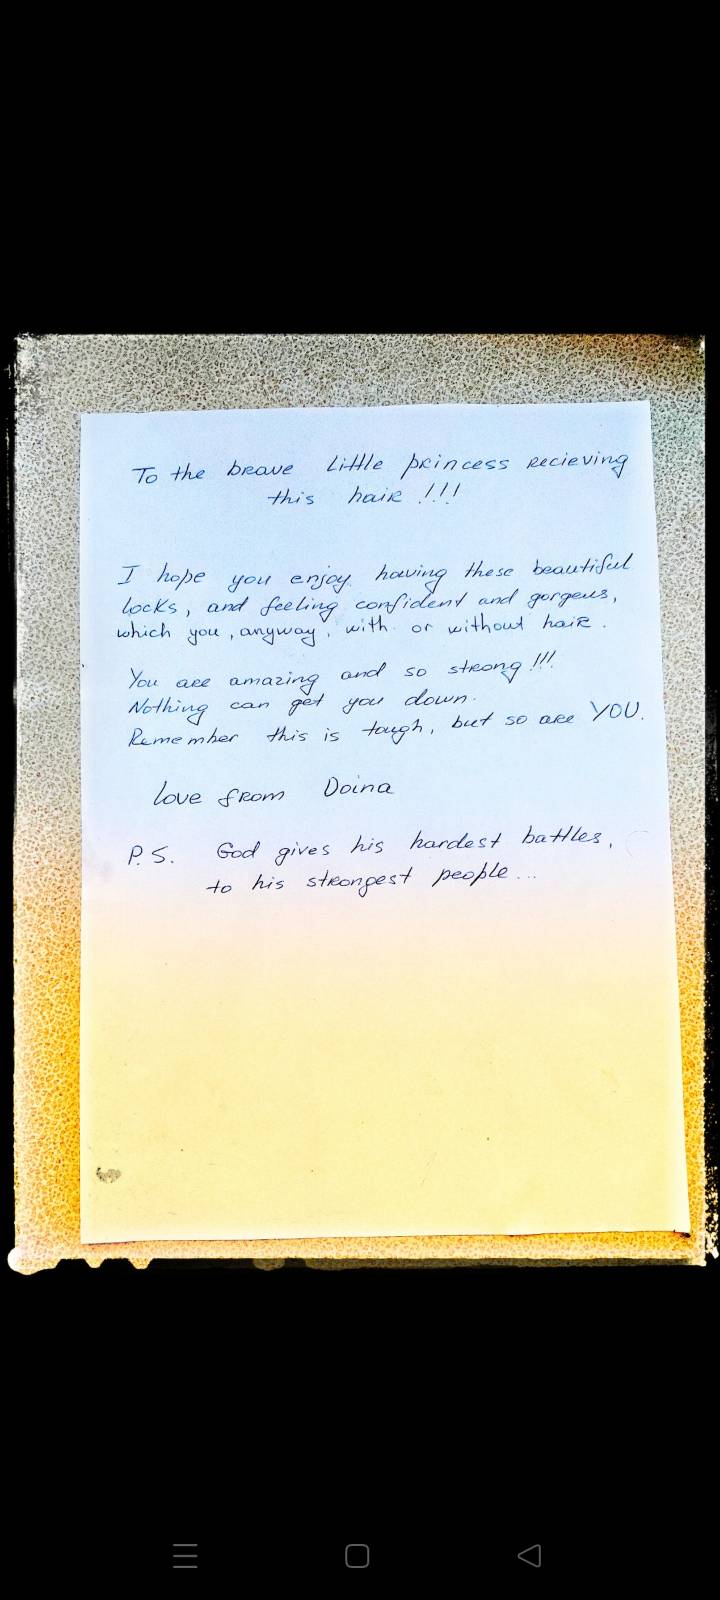 To the brave little princess recieving
this hair !!!
I hope you enjoy having these beautiful
locks, and feeling confident and gorgeus,
which you, anyway, with or without hair.
You are amazing and so strong !!!
Nothing can get you down.
Remember this is tough, but so are YOU.
love from Doina
P.S. God gives his hardest battles,
to his strongest people...